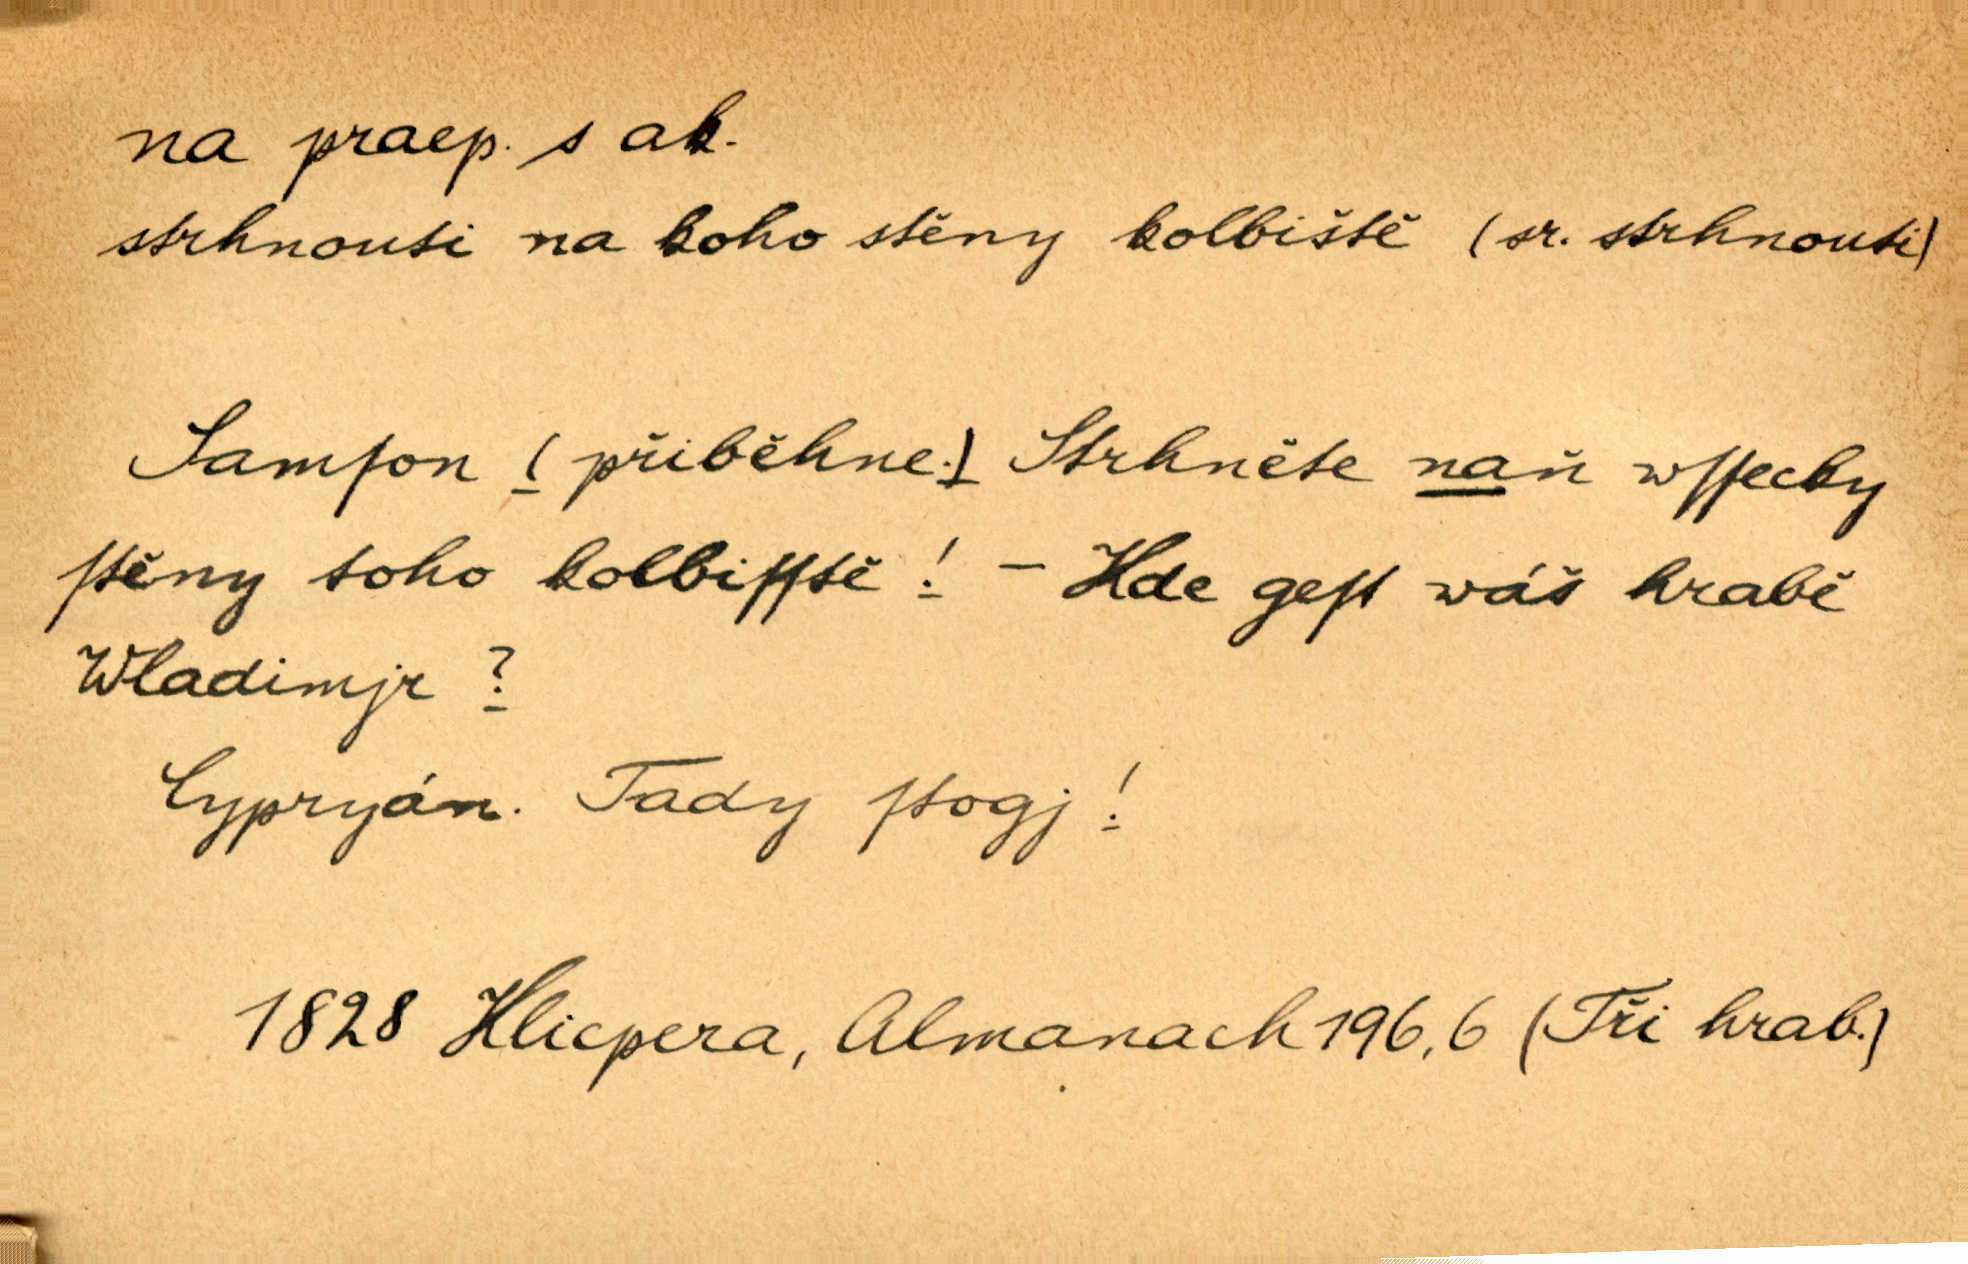 na praep. s ak.
strhnouti na koho stěny kolbiště (sr. strhnouti)
Samſon (přiběhne.) Strhněte naň wſſecky
ſtěny toho kolbiſſtě! – Kde geſt wáš hrabě
Wladimjr?
Cypryán. Tady ſtogj!
1828 Klicpera, Almanach 196,6 (Tři hrab.)